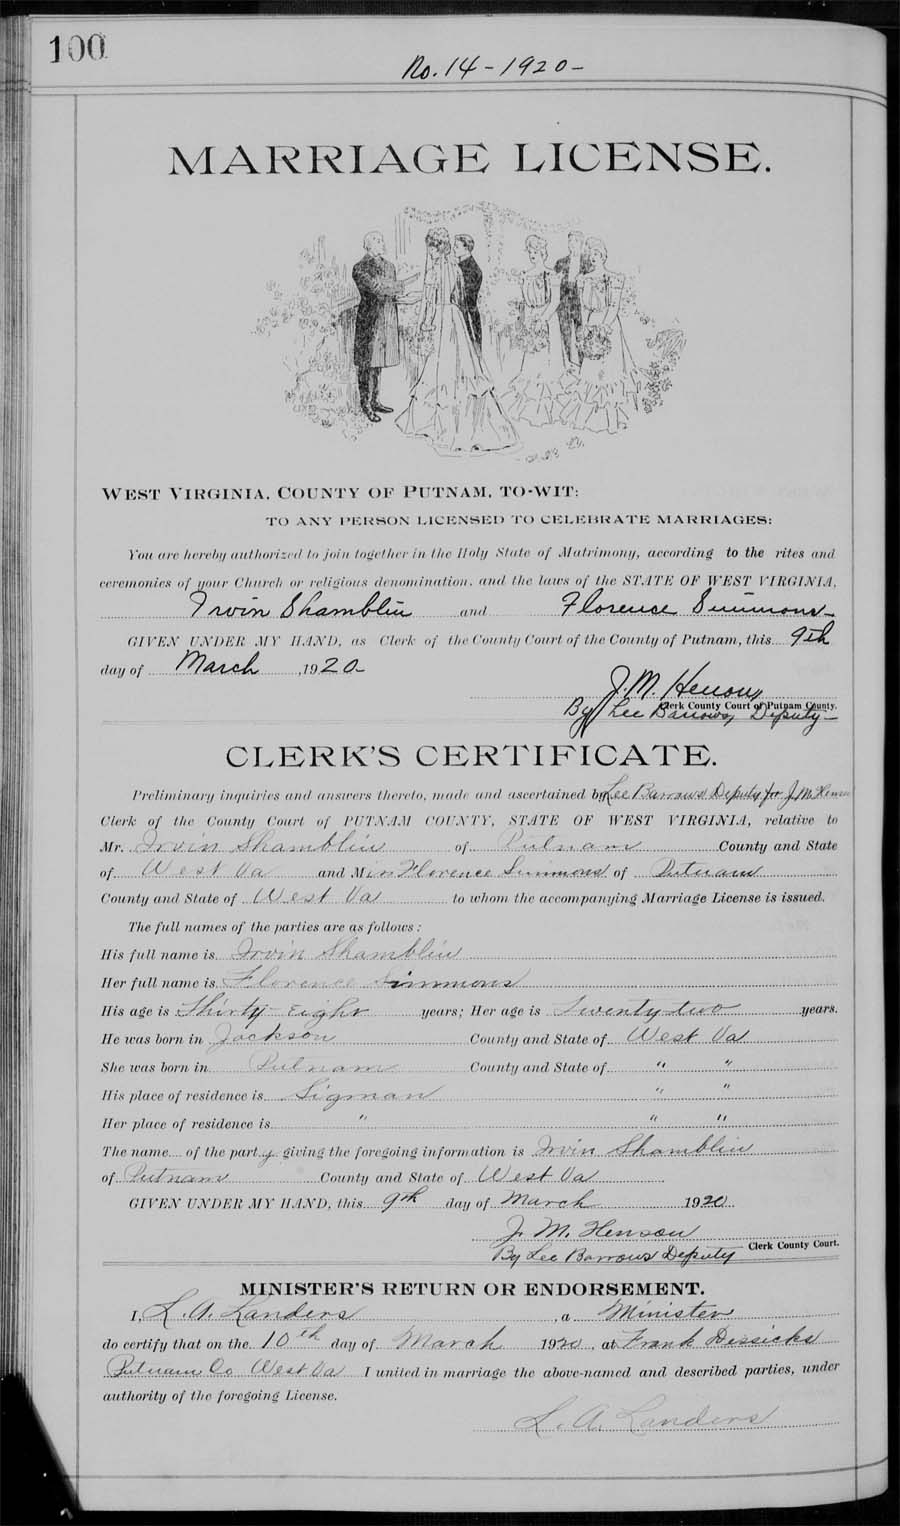 100
No. 14-1920-
MARRIAGE LICENSE.
WEST VIRGINIA, COUNTY OF PUTNAM, TO-WIT:
TO ANY PERSON LICENSED TO CELEBRATE MARRIAGES:
You are hereby authorized to join together in the Holy State of Matrimony, according to the rites and
ceremonies of your Church or religious denomination, and the laws of the STATE OF WEST VIRGINIA,
Irvin Shamblin and Florence Simmons-
GIVEN UNDER MY HAND, as Clerk of the County Court of the County of Putnam, this 9th
day of March, 1920-
J. M. Henson,
Clerk County Court of Putnam County.
By Lee Barrows, Deputy-
CLERK'S CERTIFICATE.
Preliminary inquiries and answers thereto, made and ascertained by Lee Barrows Deputy for J.M. Henson
Clerk of the County Court of PUTNAM COUNTY, STATE OF WEST VIRGINIA, relative to
Mr. Irvin Shamblin of Putnam County and State
of West Va and Miss Florence Simmons of Putnam
County and State of West Va to whom the accompanying Marriage License is issued.
The full names of the parties are as follows:
His full name is Irvin Shamblin
Her full name is Florence Simmons
His age is Thirty-Eight years; Her age is Twenty two years.
He was born in Jackson County and State of West Va
She was born in Putnam County and State of " "
His place of residence is Sigman " "
Her place of residence is " " "
The name of the party giving the foregoing information is Irvin Shamblin
of Putnam County and State of West Va
GIVEN UNDER MY HAND, this 9th day of March 1920
J. M. Henson
By Lee Barrows Deputy Clerk County Court.
MINISTER'S RETURN OR ENDORSEMENT.
I, L. A. Landers, a Minister
do certify that on the 10th day of March 1920, at Frank
Putnam Co West Va I united in marriage the above-named and described parties, under
authority of the foregoing License.
L. A. Landers